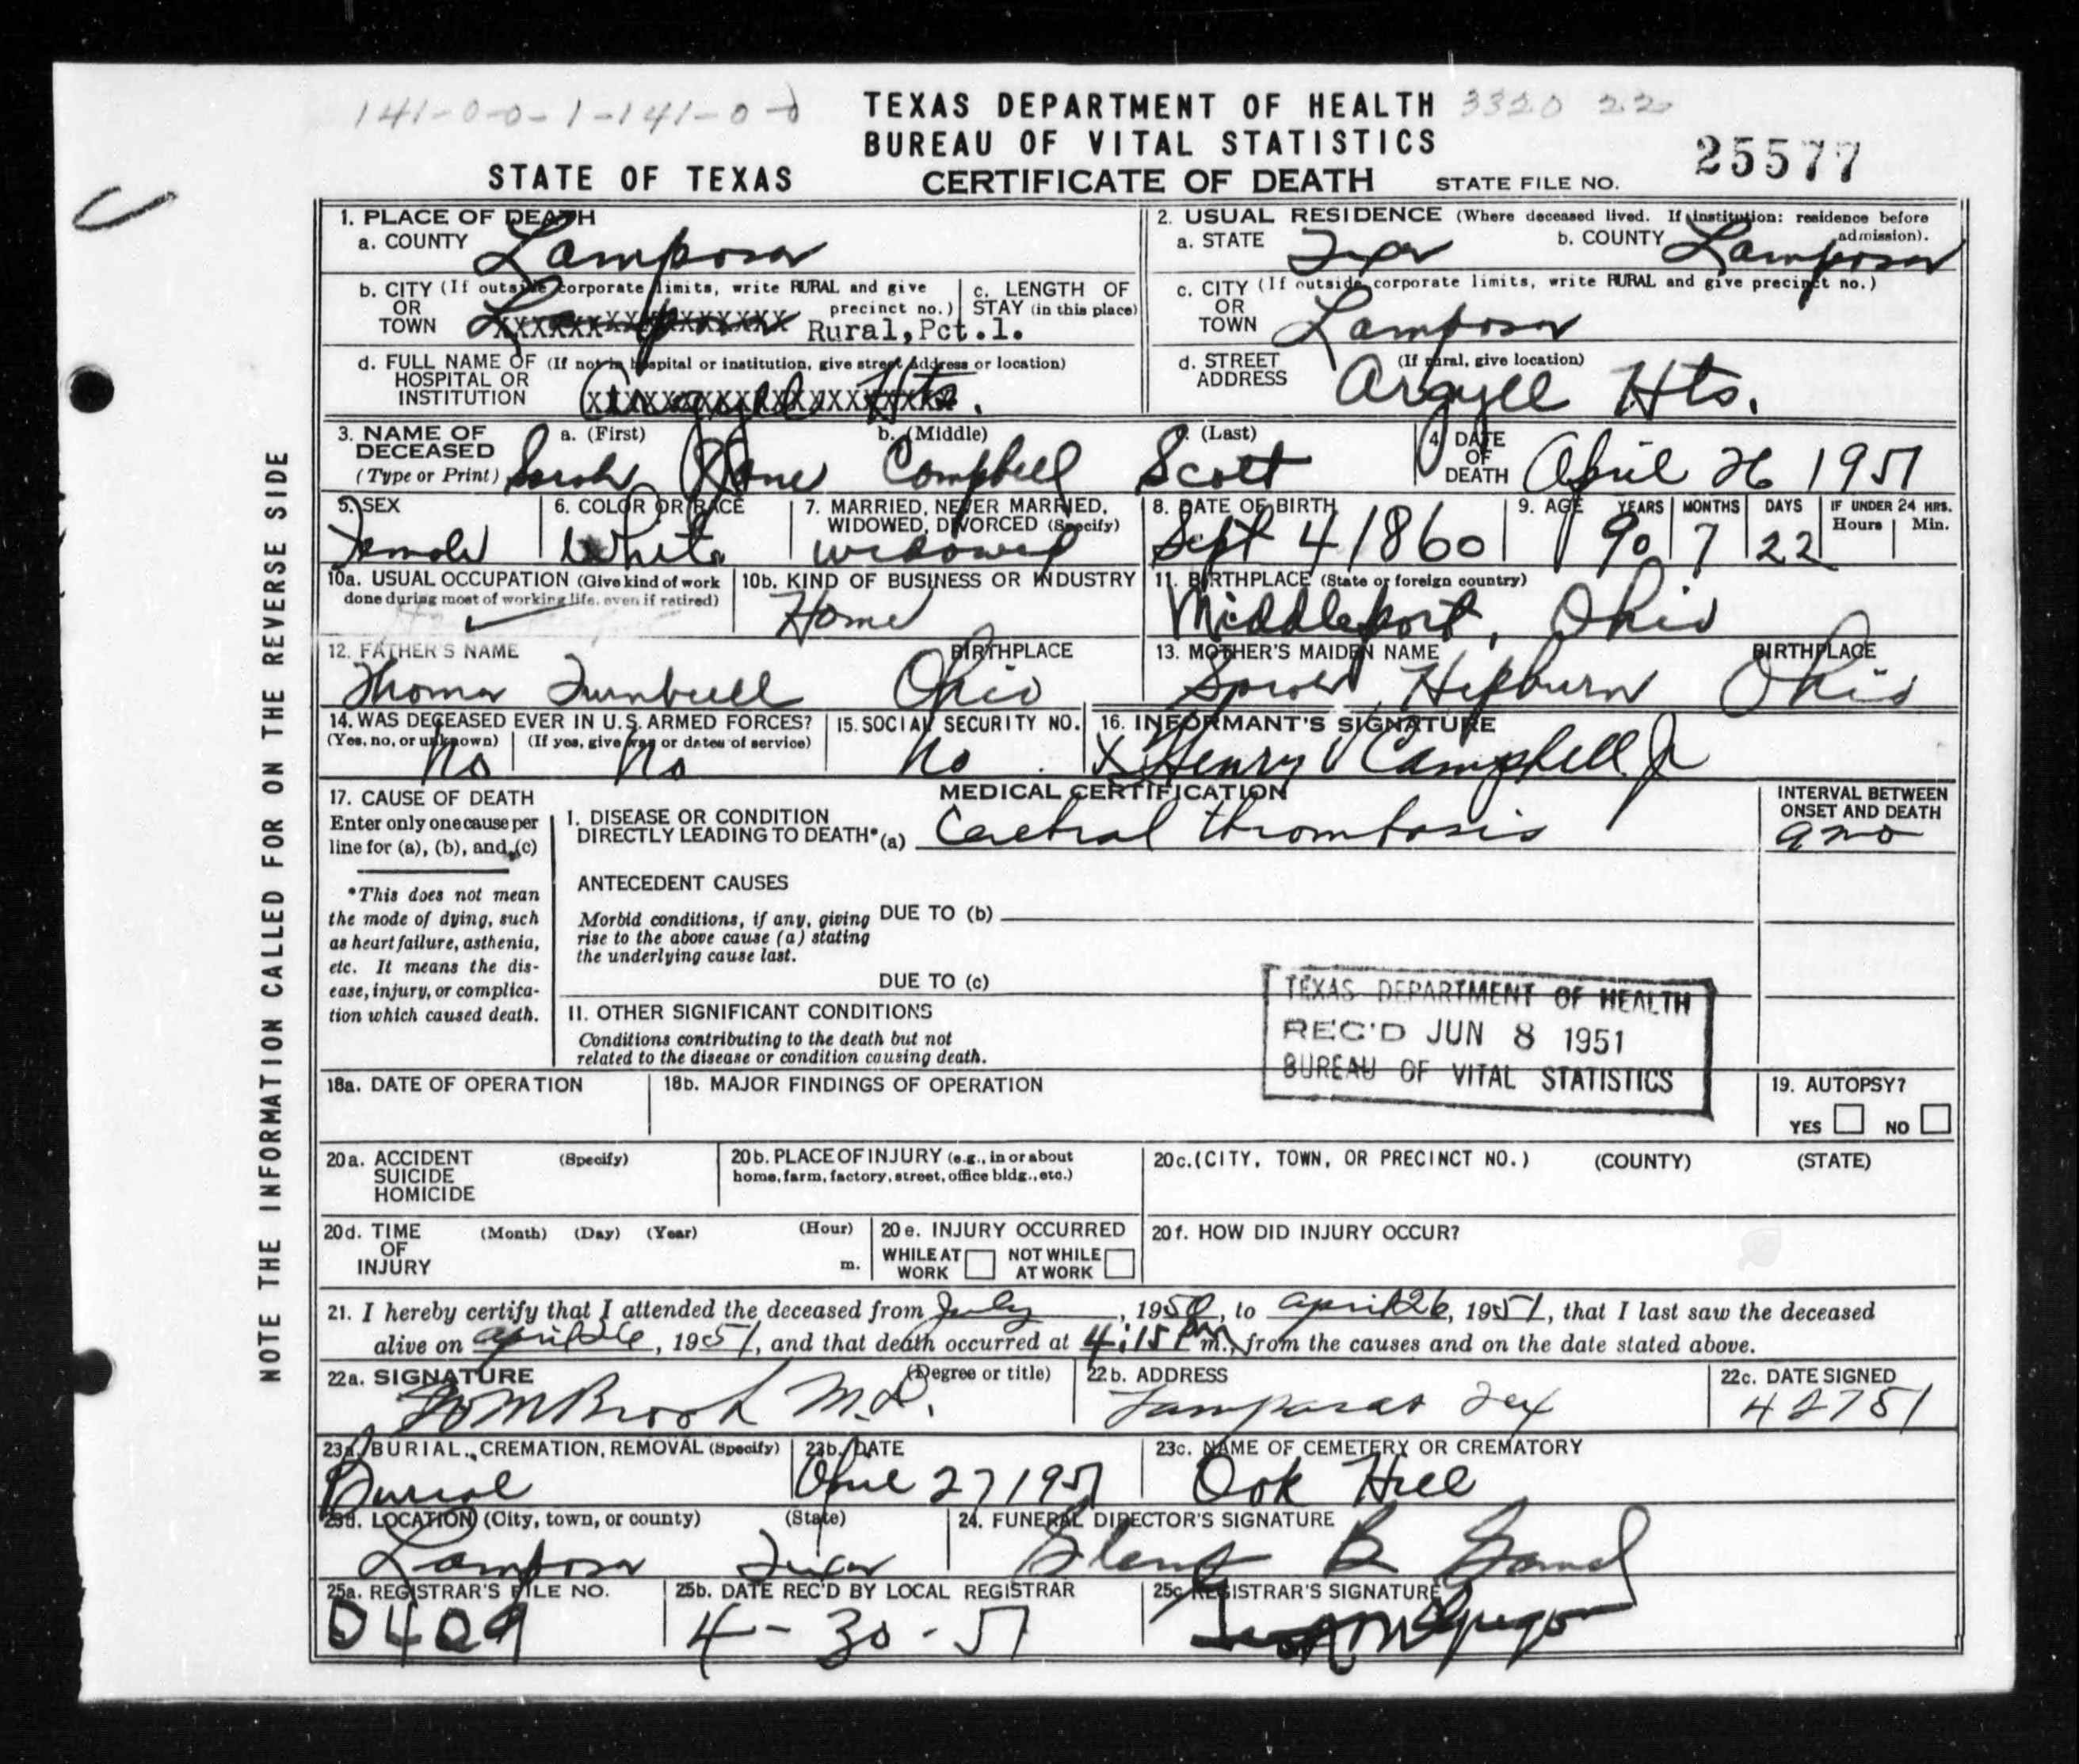 141-0-0-1-141-0-0
TEXAS DEPARTMENT OF HEALTH 3320 22
BUREAU OF VITAL STATISTICS
25577
STATE OF TEXAS CERTIFICATE OF DEATH STATE FILE NO.
NOTE THE INFORMATION CALLED FOR ON THE REVERSE SIDE
1. PLACE OF DEATH
a. COUNTY Lampasas
2. USUAL RESIDENCE (Where deceased lived. If institution: residence before admission).
a. STATE Texas b. COUNTY Lampasas
b. CITY (If outside corporate limits, write RURAL and give precinct no.)
OR
TOWN Lampasas Rural, Pct.1.
c. LENGTH OF
STAY (in this place)
c. CITY (If outside corporate limits, write RURAL and give precinct no.)
OR
TOWN Lampasas
d. FULL NAME OF (If not in hospital or institution, give street address or location)
HOSPITAL OR
INSTITUTION Argyll Hts.
d. STREET (If rural, give location)
ADDRESS Argyll Hts.
3. NAME OF a. (First) b. (Middle) c. (Last)
DECEASED
(Type or Print) Sarah Jane Campbell Scott
4. DATE
OF
DEATH April 26 1951
5. SEX
Female
6. COLOR OR RACE
White
7. MARRIED, NEVER MARRIED,
WIDOWED, DIVORCED (Specify)
widowed
8. DATE OF BIRTH
Sept 4 1860
9. AGE YEARS MONTHS DAYS IF UNDER 24 HRS.
Hours Min.
90 7 22
10a. USUAL OCCUPATION (Give kind of work
done during most of working life, even if retired)
10b. KIND OF BUSINESS OR INDUSTRY
Home
11. BIRTHPLACE (State or foreign country)
Middleport, Ohio
12. FATHER'S NAME BIRTHPLACE
Thomas Turnbull Ohio
13. MOTHER'S MAIDEN NAME BIRTHPLACE
Hepburn Ohio
14. WAS DECEASED EVER IN U.S. ARMED FORCES?
(Yes, no, or unknown) (If yes, give war or dates of service)
No No
15. SOCIAL SECURITY NO.
No
16. INFORMANT'S SIGNATURE
X Henry Campbell Jr
MEDICAL CERTIFICATION
17. CAUSE OF DEATH
Enter only one cause per
line for (a), (b), and (c)
*This does not mean
the mode of dying, such
as heart failure, asthenia,
etc. It means the dis-
ease, injury, or complica-
tion which caused death.
I. DISEASE OR CONDITION
DIRECTLY LEADING TO DEATH* (a) Cerebral thrombosis
INTERVAL BETWEEN
ONSET AND DEATH
9 mo
ANTECEDENT CAUSES
Morbid conditions, if any, giving
rise to the above cause (a) stating
the underlying cause last.
DUE TO (b)
DUE TO (c)
II. OTHER SIGNIFICANT CONDITIONS
Conditions contributing to the death but not
related to the disease or condition causing death.
TEXAS DEPARTMENT OF HEALTH
REC'D JUN 8 1951
BUREAU OF VITAL STATISTICS
18a. DATE OF OPERATION
18b. MAJOR FINDINGS OF OPERATION
19. AUTOPSY?
YES NO
20a. ACCIDENT (Specify)
SUICIDE
HOMICIDE
20b. PLACE OF INJURY (e.g., in or about
home, farm, factory, street, office bldg., etc.)
20c. (CITY, TOWN, OR PRECINCT NO.) (COUNTY) (STATE)
20d. TIME (Month) (Day) (Year) (Hour)
OF
INJURY m.
20e. INJURY OCCURRED
WHILE AT WORK NOT WHILE AT WORK
20f. HOW DID INJURY OCCUR?
21. I hereby certify that I attended the deceased from July, 1950, to April 26, 1951, that I last saw the deceased
alive on April 26, 1951, and that death occurred at 4:15 Pm m., from the causes and on the date stated above.
22a. SIGNATURE (Degree or title)
W M Brook M.D.
22b. ADDRESS
Lampasas Tex
22c. DATE SIGNED
4 27 51
23a. BURIAL, CREMATION, REMOVAL (Specify)
Burial
23b. DATE
April 27 1951
23c. NAME OF CEMETERY OR CREMATORY
Oak Hill
23d. LOCATION (City, town, or county) (State)
Lampasas Texas
24. FUNERAL DIRECTOR'S SIGNATURE
B
25a. REGISTRAR'S FILE NO.
0409
25b. DATE REC'D BY LOCAL REGISTRAR
4-30-51
25c. REGISTRAR'S SIGNATURE